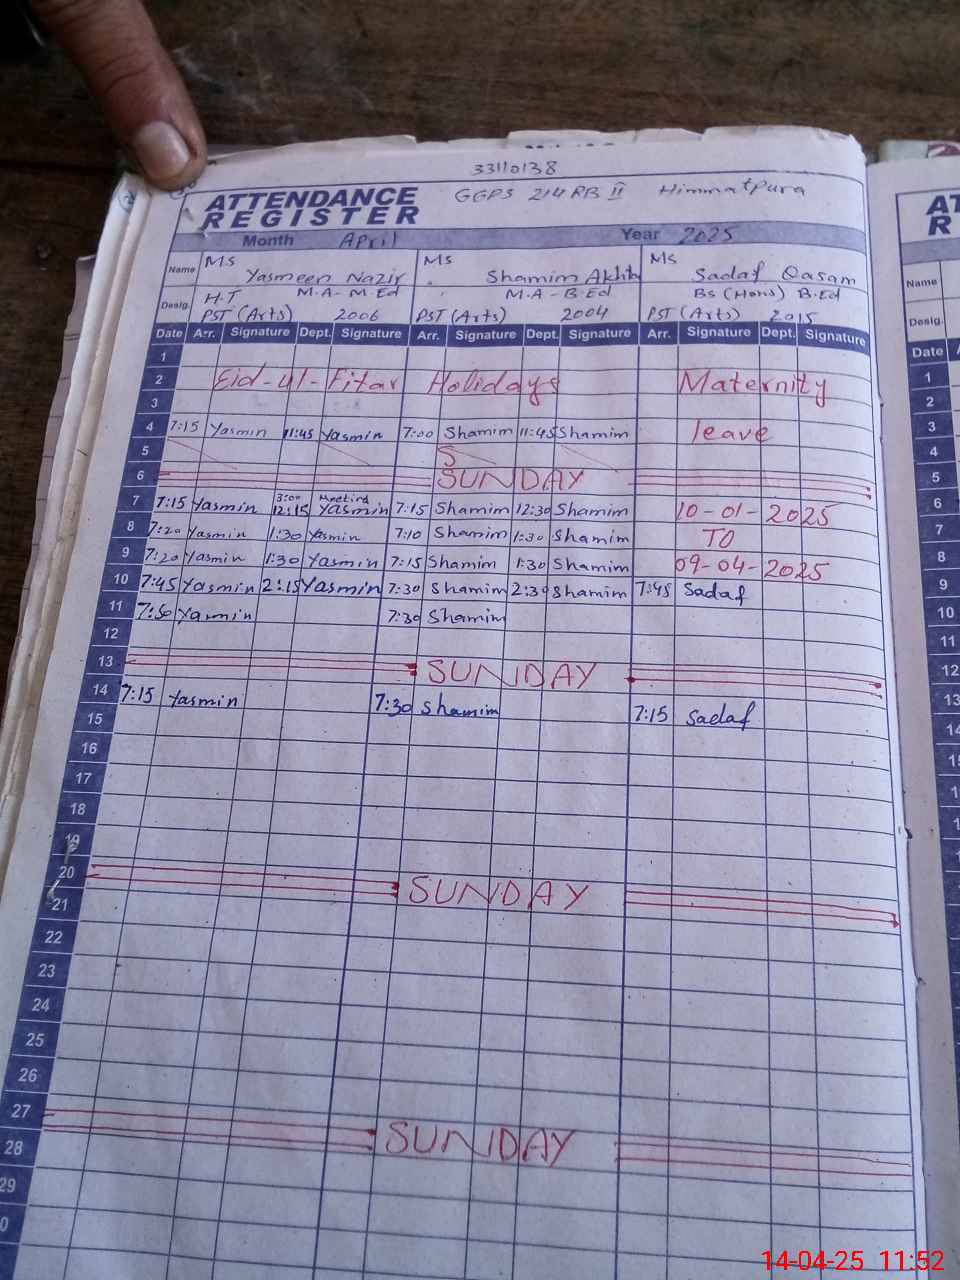 33110138
ATTENDANCE REGISTER GGPS 214 RB II Himmatpura
Month April Year 2025
Name Ms Yasmeen Nazir Ms Shamim Akhtar Ms Sadaf Qasam
Desig. H.T M.A-M.Ed M.A-B.Ed BS (Hons) B.Ed
PST (Arts) 2006 PST (Arts) 2004 PST (Arts) 2015
Date Arr. Signature Dept. Signature Arr. Signature Dept. Signature Arr. Signature Dept. Signature
1
2 Eid-ul-Fitar Holidays Maternity
3
4 7:15 Yasmin 11:45 Yasmin 7:00 Shamim 11:45 Shamim leave
5
6 SUNDAY
7 7:15 Yasmin 3:00 12:15 Meeting Yasmin 7:15 Shamim 12:30 Shamim 10-01-2025
8 7:20 Yasmin 1:30 Yasmin 7:10 Shamim 1:30 Shamim TO
9 7:20 Yasmin 1:30 Yasmin 7:15 Shamim 1:30 Shamim 09-04-2025
10 7:45 Yasmin 2:15 Yasmin 7:30 Shamim 2:30 Shamim 7:45 Sadaf
11 7:50 Yasmin 7:30 Shamim
12
13 SUNDAY
14 7:15 Yasmin 7:30 Shamim 7:15 Sadaf
15
16
17
18
19
20 SUNDAY
21
22
23
24
25
26
27 SUNDAY
28
29
0
AT
R
Name
Desig.
Date
1
2
3
4
5
6
7
8
9
10
11
12
13
14
14-04-25 11:52